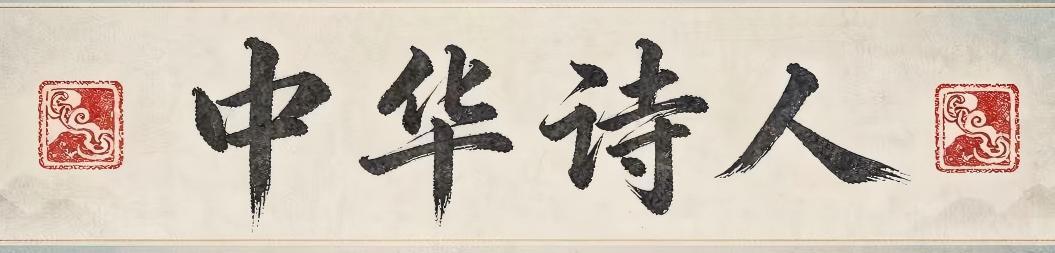 中华诗人